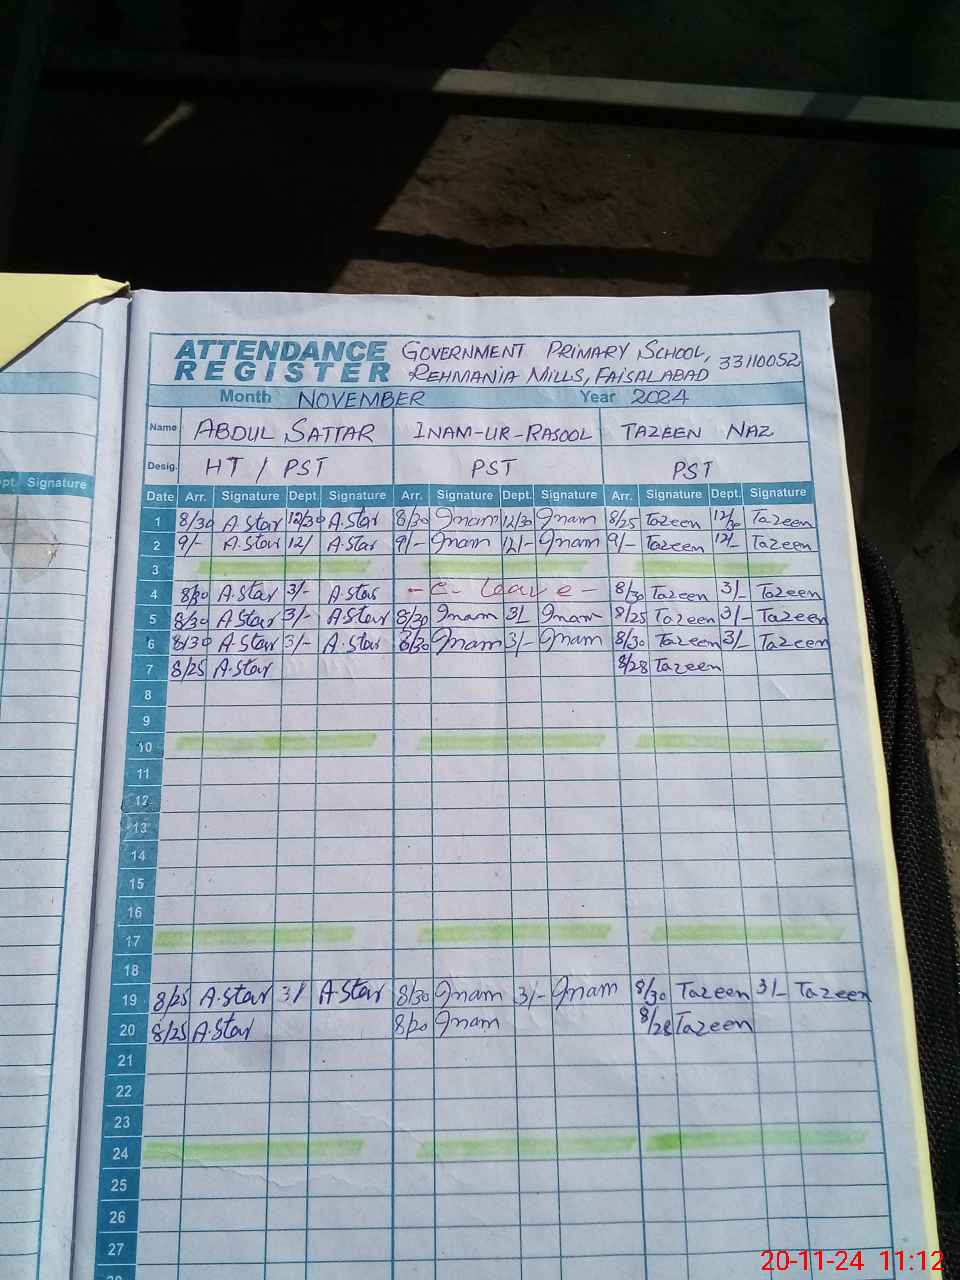 ATTENDANCE REGISTER GOVERNMENT PRIMARY SCHOOL, REHMANIA MILLS, FAISALABAD 33110052
Month NOVEMBER Year 2024
Name ABDUL SATTAR INAM-UR-RASOOL TAZEEN NAZ
Desig. HT / PST PST PST
pt. Signature
Date Arr. Signature Dept. Signature Arr. Signature Dept. Signature Arr. Signature Dept. Signature
1 8/30 A.Star 12/30 A.Star 8/30 Inam 12/30 Inam 8/25 Tazeen 12/30 Tazeen
2 9/- A.Star 12/ A.Star 9/- Inam 12/- Inam 9/- Tazeen 12/- Tazeen
3
4 8/30 A.Star 3/- A.Star - C- leave - 8/30 Tazeen 3/- Tazeen
5 8/30 A.Star 3/- A.Star 8/30 Inam 3/- Inam 8/25 Tazeen 3/- Tazeen
6 8/30 A.Star 3/- A.Star 8/30 Inam 3/- Inam 8/30 Tazeen 3/- Tazeen
7 8/25 A.Star 8/28 Tazeen
8
9
10
11
12
13
14
15
16
17
18
19 8/25 A.Star 3/ A.Star 8/30 Inam 3/- Inam 8/30 Tazeen 3/- Tazeen
20 8/25 A.Star 8/20 Inam 8/28 Tazeen
21
22
23
24
25
26
27
20-11-24 11:12